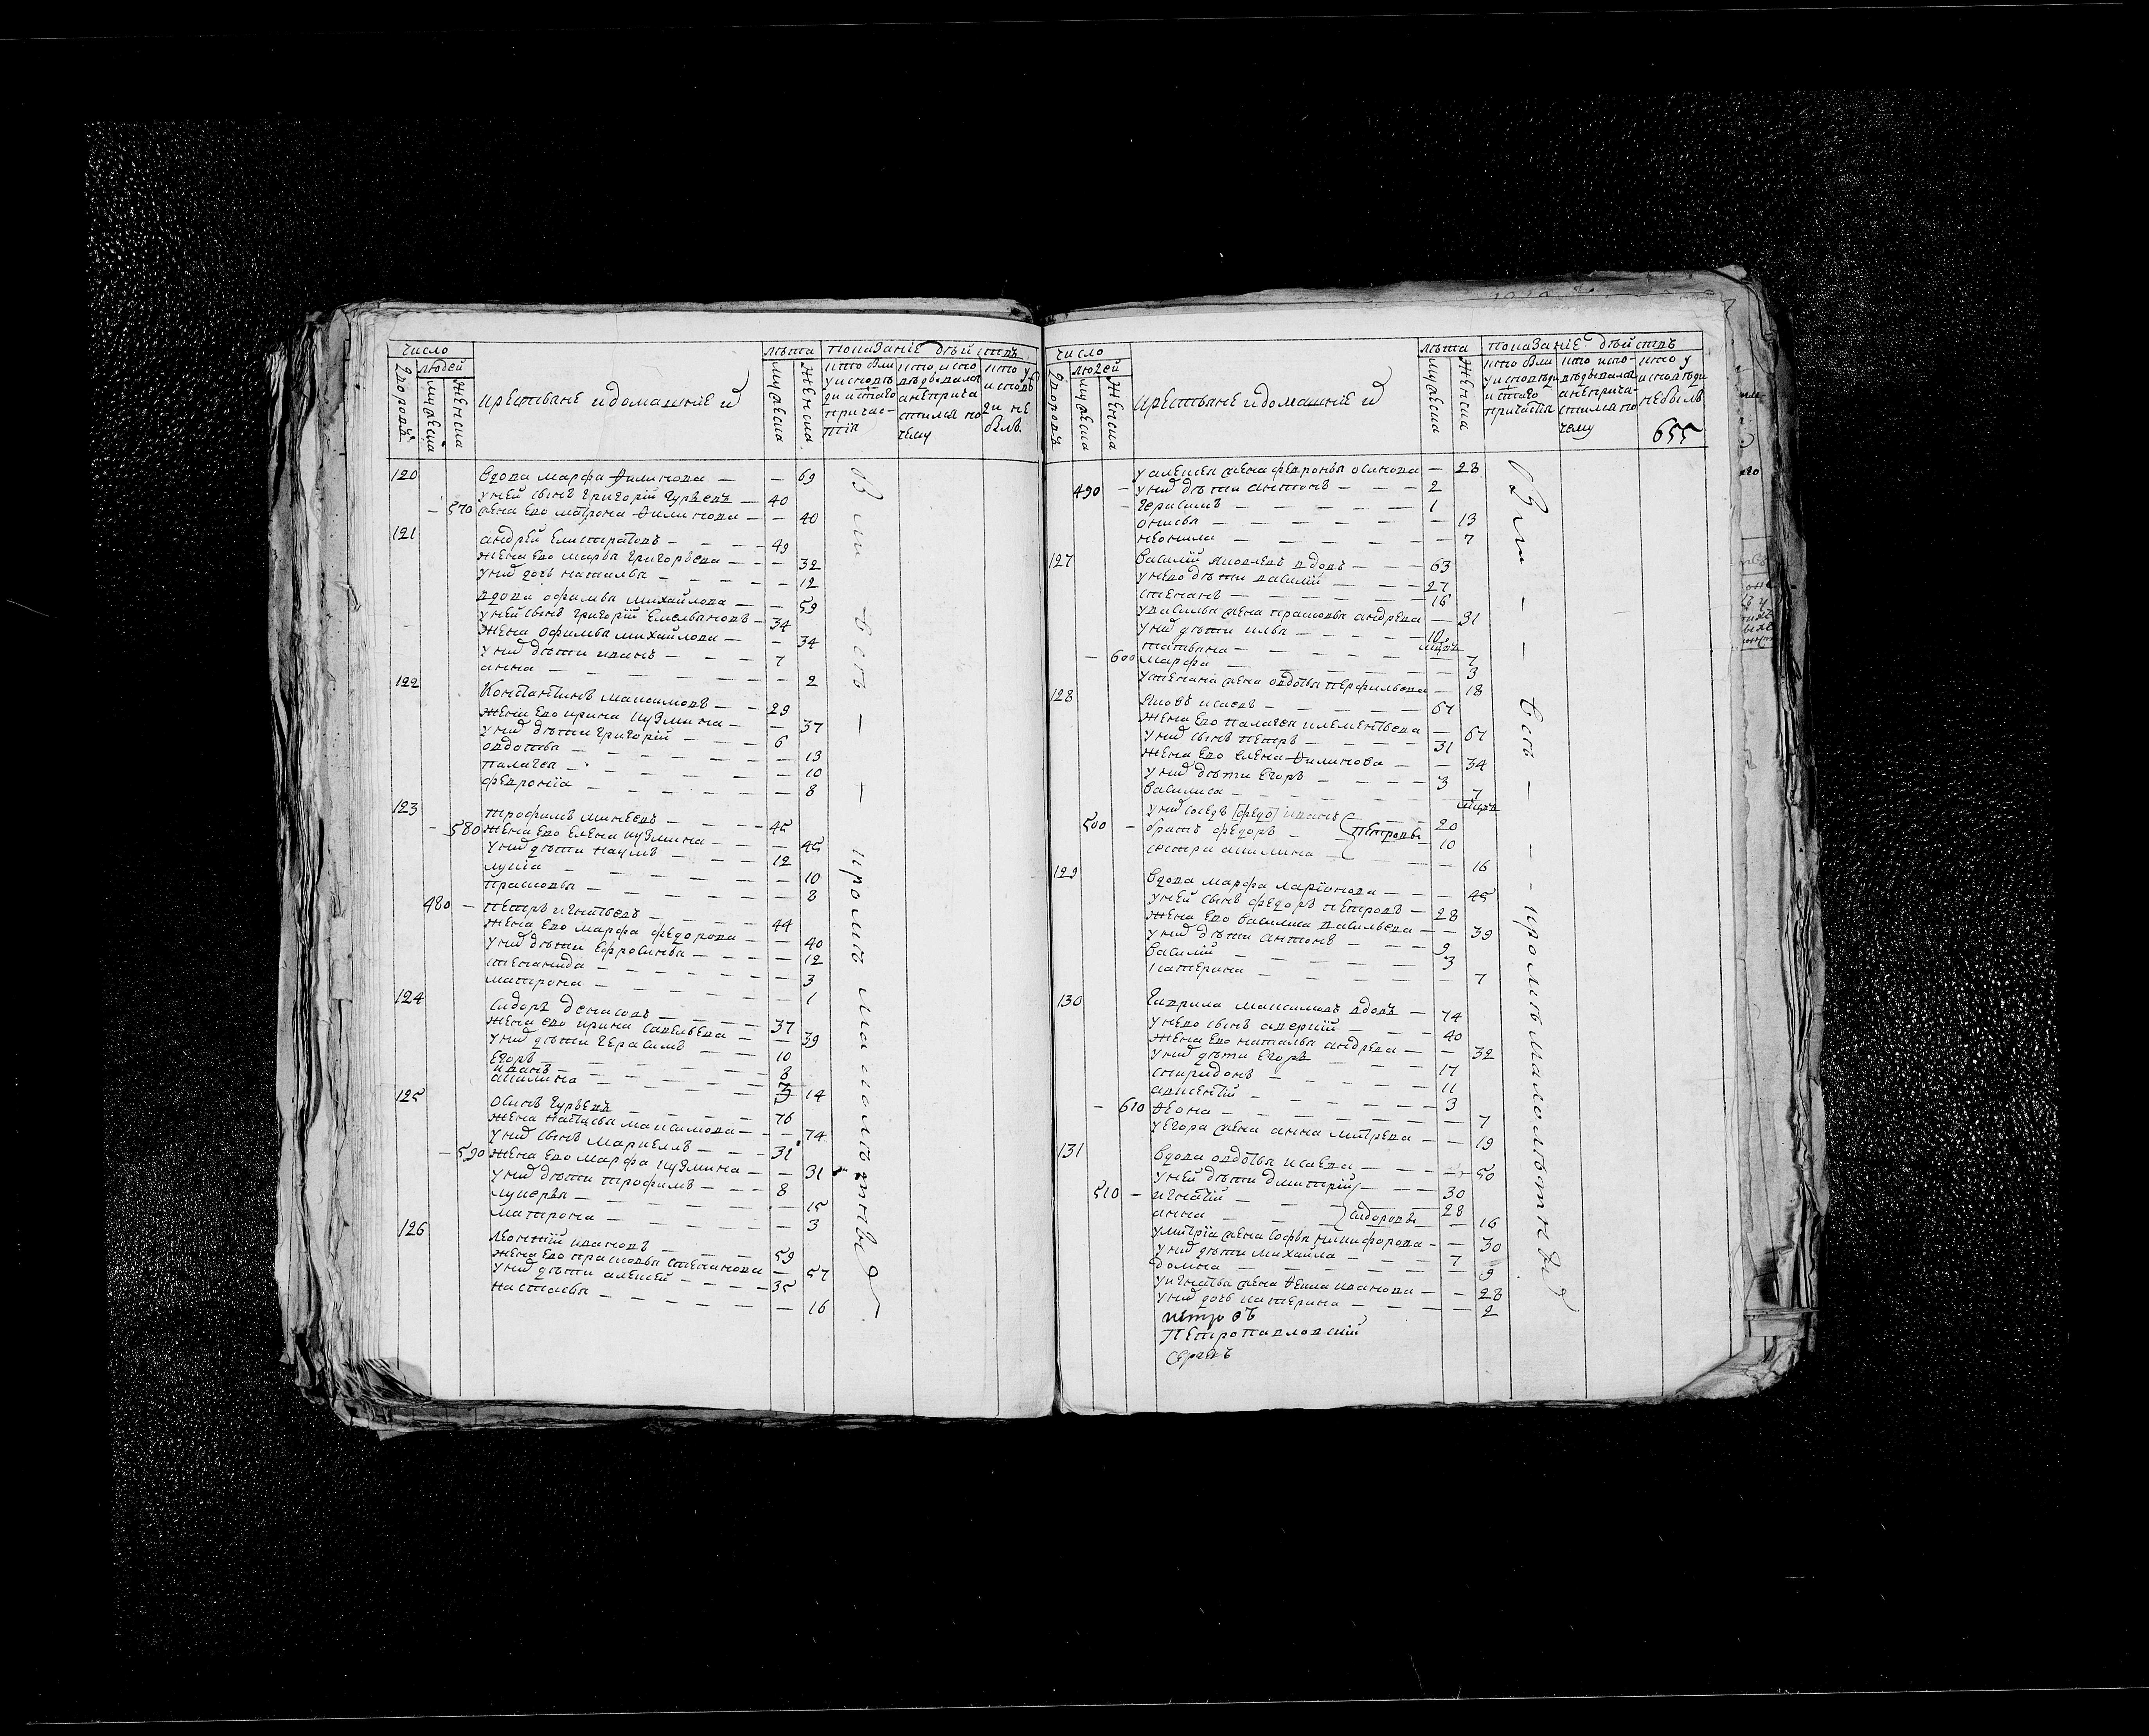 число
людей
дворовъ
мужеска
женска
крестьяне и домашние их
лѣта
мужеска
женска
показание дѣйствъ
кто были у исповѣди и святаго причастія
кто исповѣдывался а не причастился и по чему
кто у исповѣди не былъ
120 Вдова Марфа Филипова — — 69
у ней сынъ Григорій Гурьевъ — 40
— 570 жена ево Матрона Филипова — — 40
121 андрей Елистратовъ — 49
жена ево Марья Григорьева — — 32
у них дочь наталья — — 12
вдова офимья михайлова — — 59
у ней сынъ григорій Емельяновъ — 34
жена офимья михайлова — — 34
у них дѣти иванъ — 7
анна — — 2
122 Константинъ максимовъ — 29
жена ево ирина кузмина — — 37
у них дѣти григорій — 6
овдотья — — 13
палагея — — 10
федронія — — 8
123 трофимъ минеевъ — 45
— 580 жена ево Елена кузмина — — 45
у них дѣти наумъ — 12
лукія — — 10
прасковья — — 8
480 — петръ игнатьевъ — 44
жена ево марфа федорова — — 40
у них дѣти Ефросинья — — 12
степанида — — 3
матрона — — 1
124 Сидоръ денисовъ — 37
жена ево ирина савельева — — 39
у них дѣти герасимъ — 10
Егоръ — 8
иванъ — 3
акилина — 14
125 осипъ гурьевъ — 76
жена настасья максимова — — 74
у них сынъ маркеллъ — 31
— 590 жена ево марфа кузмина — — 31
у них дѣти трофимъ — 8
лукерья — — 15
матрона — — 3
126 леонтій ивановъ — 59
жена ево прасковья степанова — 57
у них дѣти алексей — 35
настасья — — 16
Были — всѣ — кромѣ малолѣтныхъ
число
людей
дворовъ
мужеска
женска
крестьяне и домашние их
лѣта
мужеска
женска
показание дѣйствъ
кто были у исповѣди и святаго причастія
кто исповѣдывался а не причастился по чему
кто у исповѣди не былъ
655
у алексея жена федронья осипова — 28
490 — у них дѣти антонъ — 2
герасимъ — 1
онисья — — 13
неонила — — 7
127 Василій яковлевъ вдовъ — 63
у нево дѣти василій — 27
степанъ — 16
у василья жена прасковья андреева — 31
у них дѣти илья — 10
татьяна —
— 600 марфа — — 7
3
у степана жена овдотья перфильева — 18
128 яковъ исаевъ — 67
жена ево палагея клементьева — 67
у них сынъ петръ — 31
жена ево елена филипова — — 34
у них дѣти Егоръ — 3
василиса — 7
у них соседъ [федо] иванъ — 20
500 — братъ федоръ — петровы 10
сестра акилина — 16
129 Вдова марфа ларіонова — — 45
у ней сынъ федоръ петровъ — 28
жена ево василиса васильева — — 39
у них дѣти антонъ — 9
василій — 3
катерина — — 7
130 Гаврила максимовъ вдовъ — 74
у нево сынъ аверкій — 40
жена ево наталья андреева — — 32
у них дѣти Егоръ — 17
спиридонъ — 11
авксентій — 3
— 610 феона — — 7
у егора жена анна митрева — — 19
131 Вдова овдотья исаева — — 50
у ней дѣти дмитрій — 30
510 — игнатій — 28
анна — сидоровы — 16
у митрія жена софья никифорова — — 30
у них дѣти михайла — 7
домна — 9
у игнатья жена фекла иванова — — 28
у них дочь катерина — — 2
Петропавловскій
Были — всѣ — кромѣ малолѣтныхъ